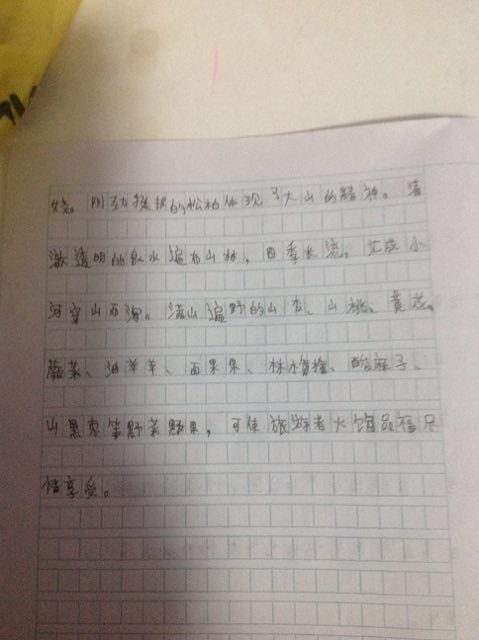 娆。刚劲挺拔的松柏体现了大山的精神。清
澈透明的泉水遍布山林，四季长流，汇成小
河穿山而泻。满山遍野的山杏、山桃、黄花、
蕨菜、油羊羊、面果果、林榛、酸座子、
山黑枣等野菜野果，可使旅游者大饱品福尽
情享受。